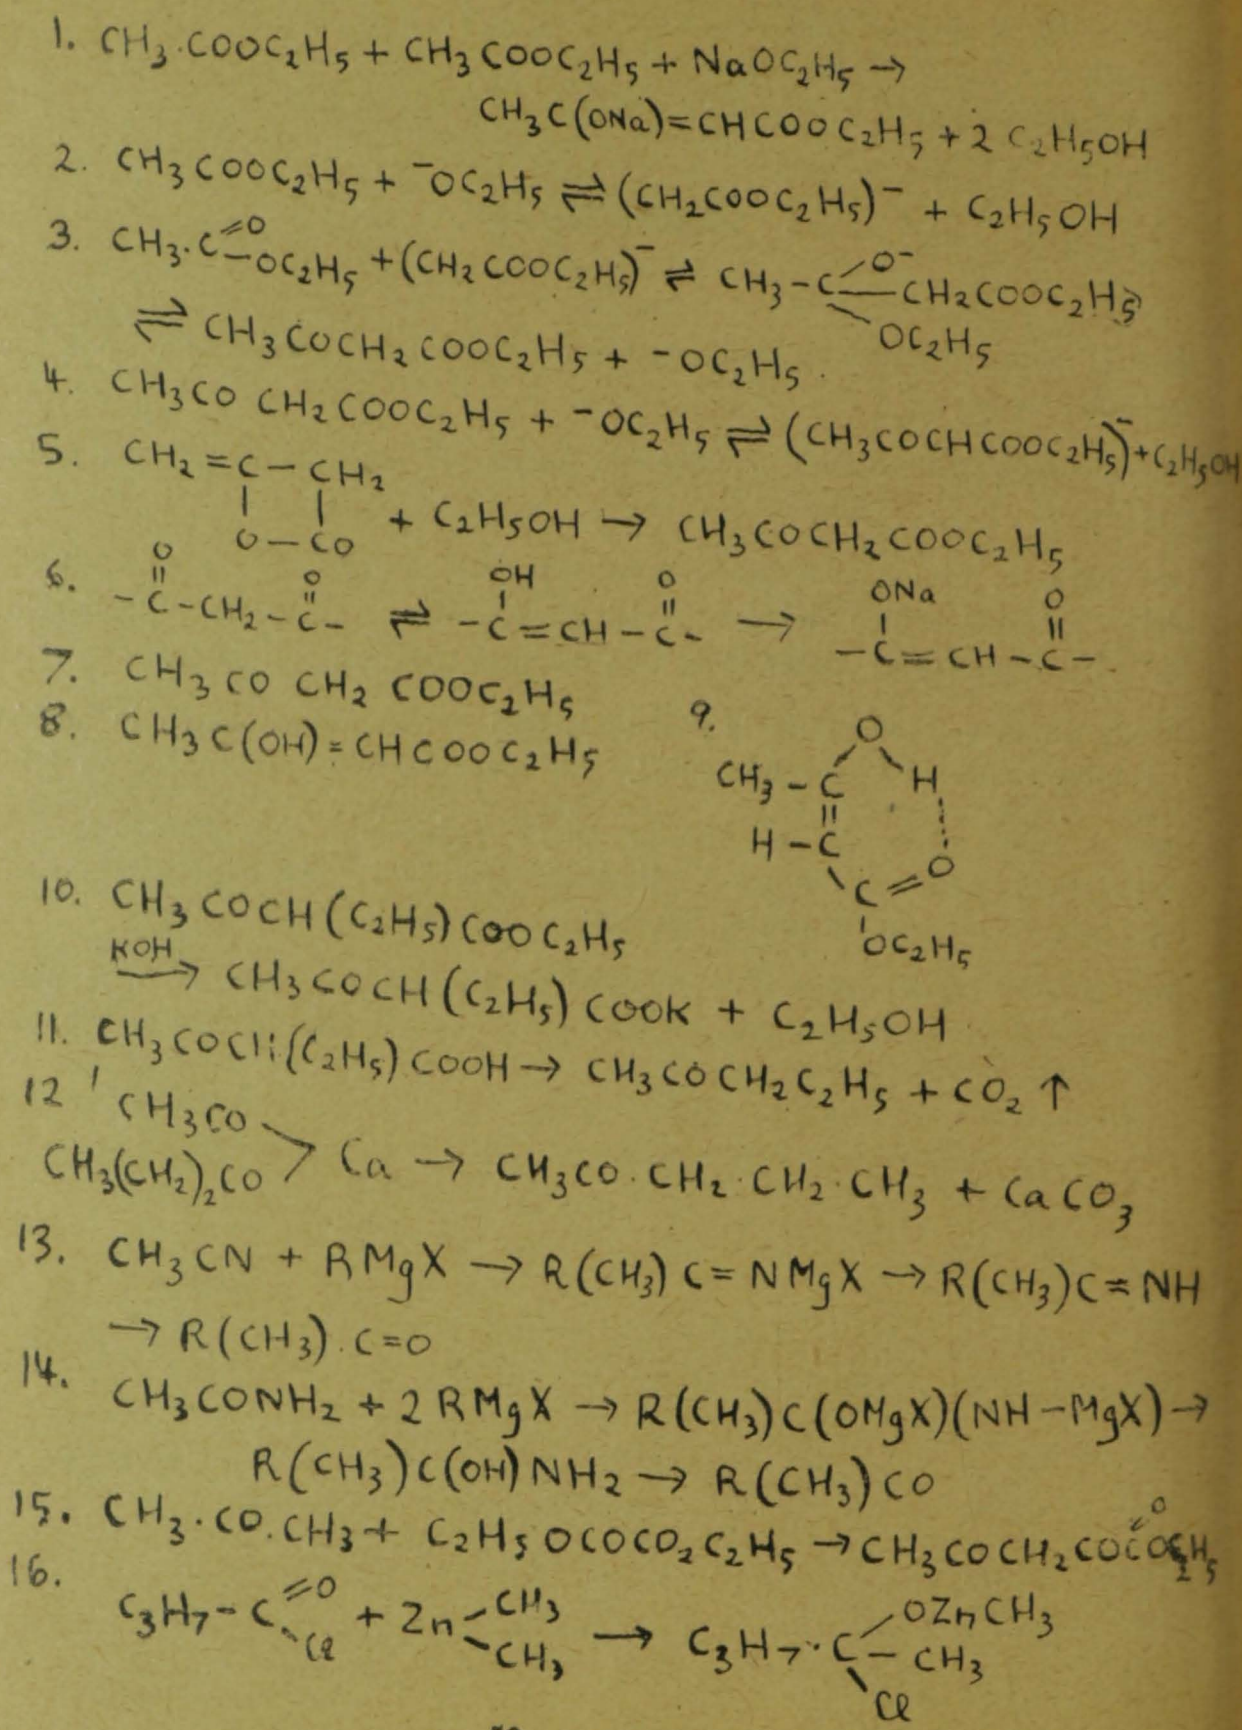 1. CH₃.COOC₂H₅ + CH₃COOC₂H₅ + NaOC₂H₅ →
CH₃C(ONa)=CHCOOC₂H₅ + 2 C₂H₅OH
2. CH₃COOC₂H₅ + ⁻OC₂H₅ ⇌ (CH₂COOC₂H₅)⁻ + C₂H₅OH
3. CH₃.C=O–OC₂H₅ + (CH₂COOC₂H₅)⁻ ⇌ CH₃–C–O⁻ –CH₂COOC₂H₅
OC₂H₅
⇌ CH₃COCH₂COOC₂H₅ + ⁻OC₂H₅.
4. CH₃CO CH₂COOC₂H₅ + ⁻OC₂H₅ ⇌ (CH₃COCHCOOC₂H₅)⁻ + C₂H₅OH
5. CH₂=C–CH₂
O–CO + C₂H₅OH → CH₃COCH₂COOC₂H₅
O O OH O ONa O
6. –C–CH₂–C– ⇌ –C=CH–C– → –C=CH–C–
7. CH₃CO CH₂ COOC₂H₅
8. CH₃C(OH)=CHCOOC₂H₅
9. O
CH₃–C H
H–C O
C=O
OC₂H₅
10. CH₃COCH(C₂H₅)COOC₂H₅
KOH→ CH₃COCH(C₂H₅)COOK + C₂H₅OH
11. CH₃COCH(C₂H₅)COOH → CH₃COCH₂C₂H₅ + CO₂ ↑
12 CH₃CO
CH₃(CH₂)₂CO > Ca → CH₃CO.CH₂.CH₂.CH₃ + CaCO₃
13. CH₃CN + RMgX → R(CH₃)C=NMgX → R(CH₃)C=NH
→ R(CH₃).C=O
14. CH₃CONH₂ + 2RMgX → R(CH₃)C(OMgX)(NH–MgX) →
R(CH₃)C(OH)NH₂ → R(CH₃)CO
15. CH₃.CO.CH₃ + C₂H₅OCOCO₂C₂H₅ → CH₃COCH₂COC=O OC₂H₅
16. C₃H₇–C=O Cl + Zn–CH₃ CH₃ → C₃H₇.C–OZnCH₃ –CH₃
Cl